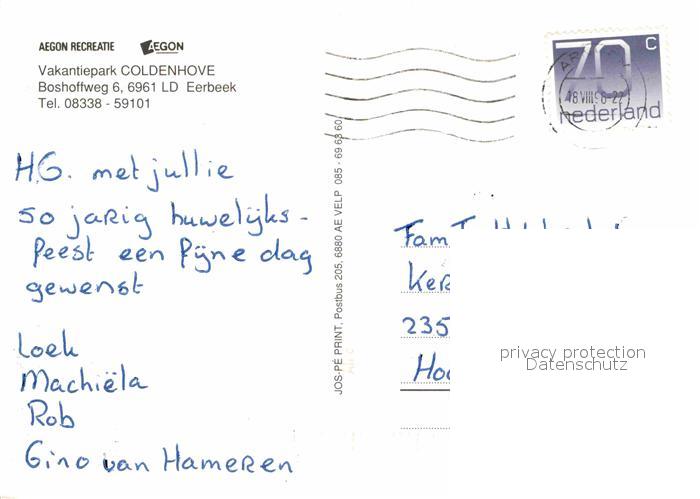 AEGON RECREATIE AEGON
Vakantiepark COLDENHOVE
Boshoffweg 6, 6961 LD Eerbeek
Tel. 08338 - 59101
70 C
nederland
H.G. met jullie
50 jarig huwelijks-
feest een fijne dag
gewenst
Loek
Machiëla
Rob
Gino van Hameren
JOS-PÉ PRINT, Postbus 205, 6880 AE VELP 085 - 69 63 60
Fam
235
privacy protection
Datenschutz